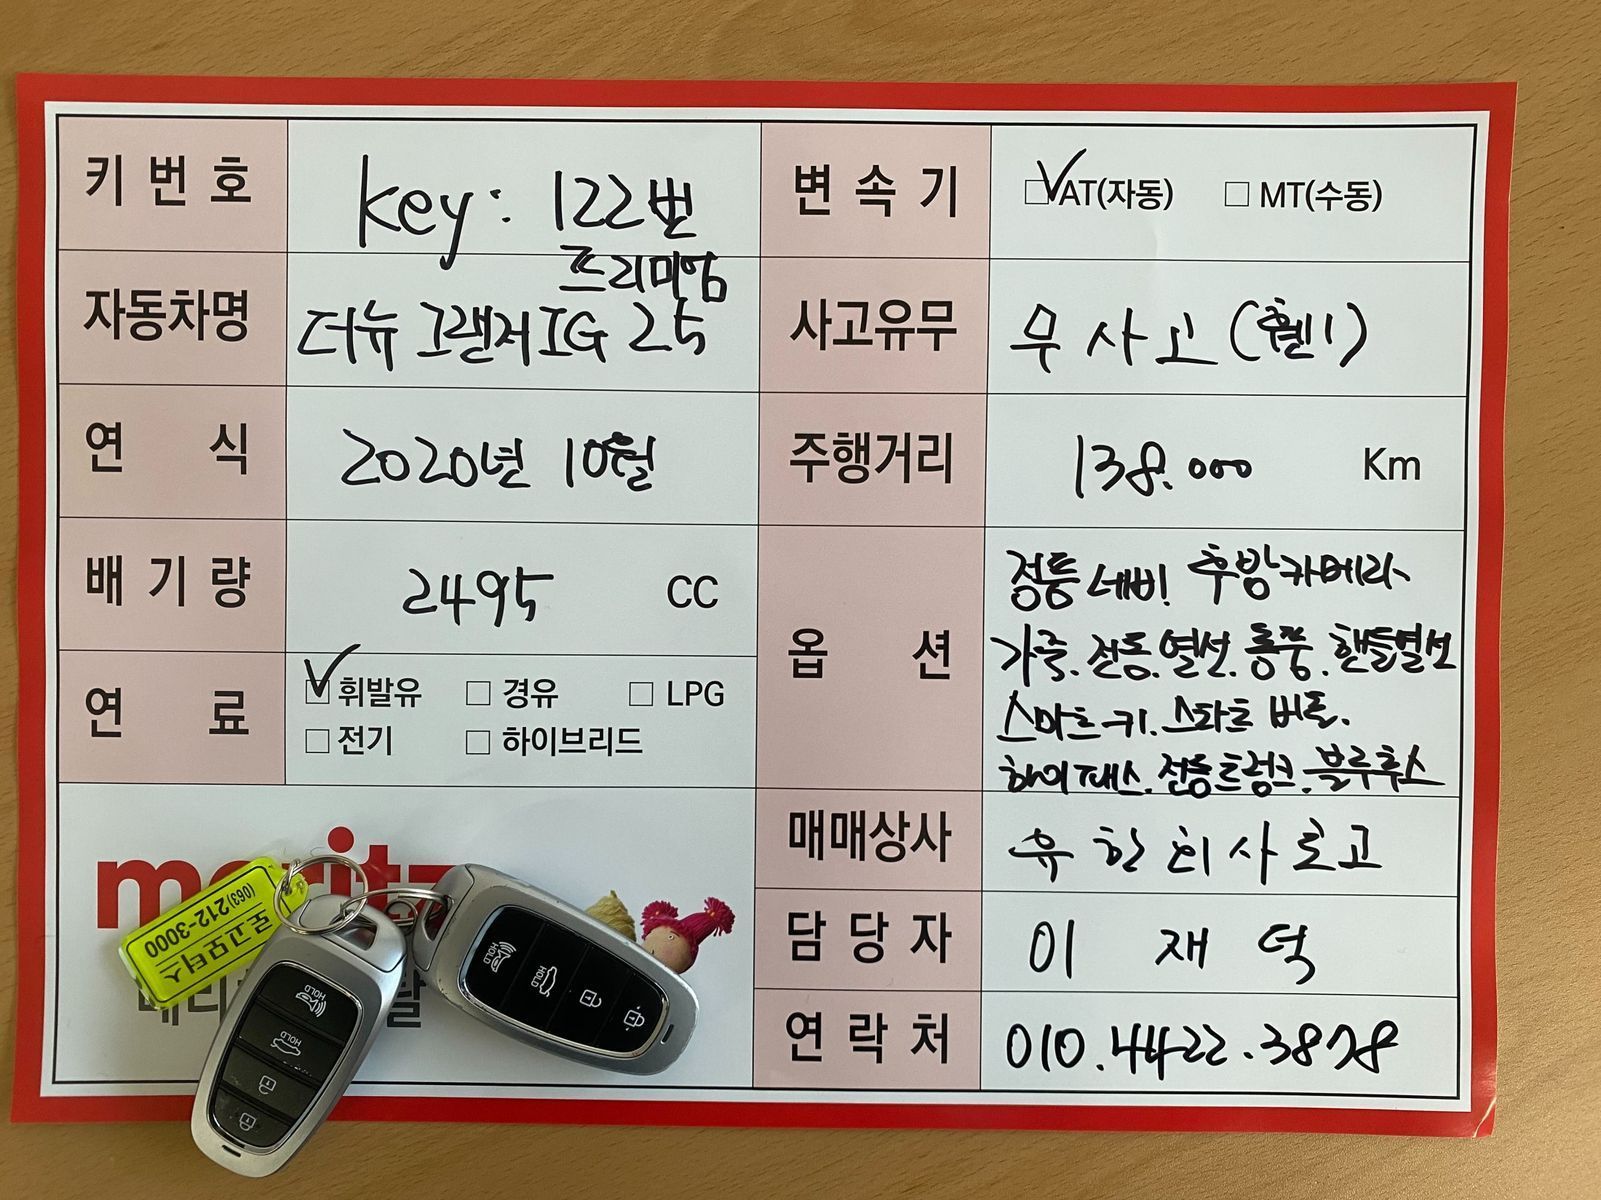 키 번 호
key: 122번
변 속 기
☑ AT(자동) □ MT(수동)
자동차명
프리미엄
더뉴 그랜저 IG 25
사고유무
무 사고 (휀1)
연 식
2020년 10월
주행거리
138.000 Km
배 기 량
2495 CC
옵 션
정품 네비! 후방카메라
가죽. 전동. 열선. 통풍. 핸들열선
스마트키. 스타트 버튼.
하이패스. 전동트렁크. 블루투스
연 료
☑ 휘발유 □ 경유 □ LPG
□ 전기 □ 하이브리드
매매상사
유한회사 로고
담 당 자
이 재 덕
연 락 처
010.4422.3878
로고모터스
(063)212-3000
HOLD
HOLD
HOLD
HOLD